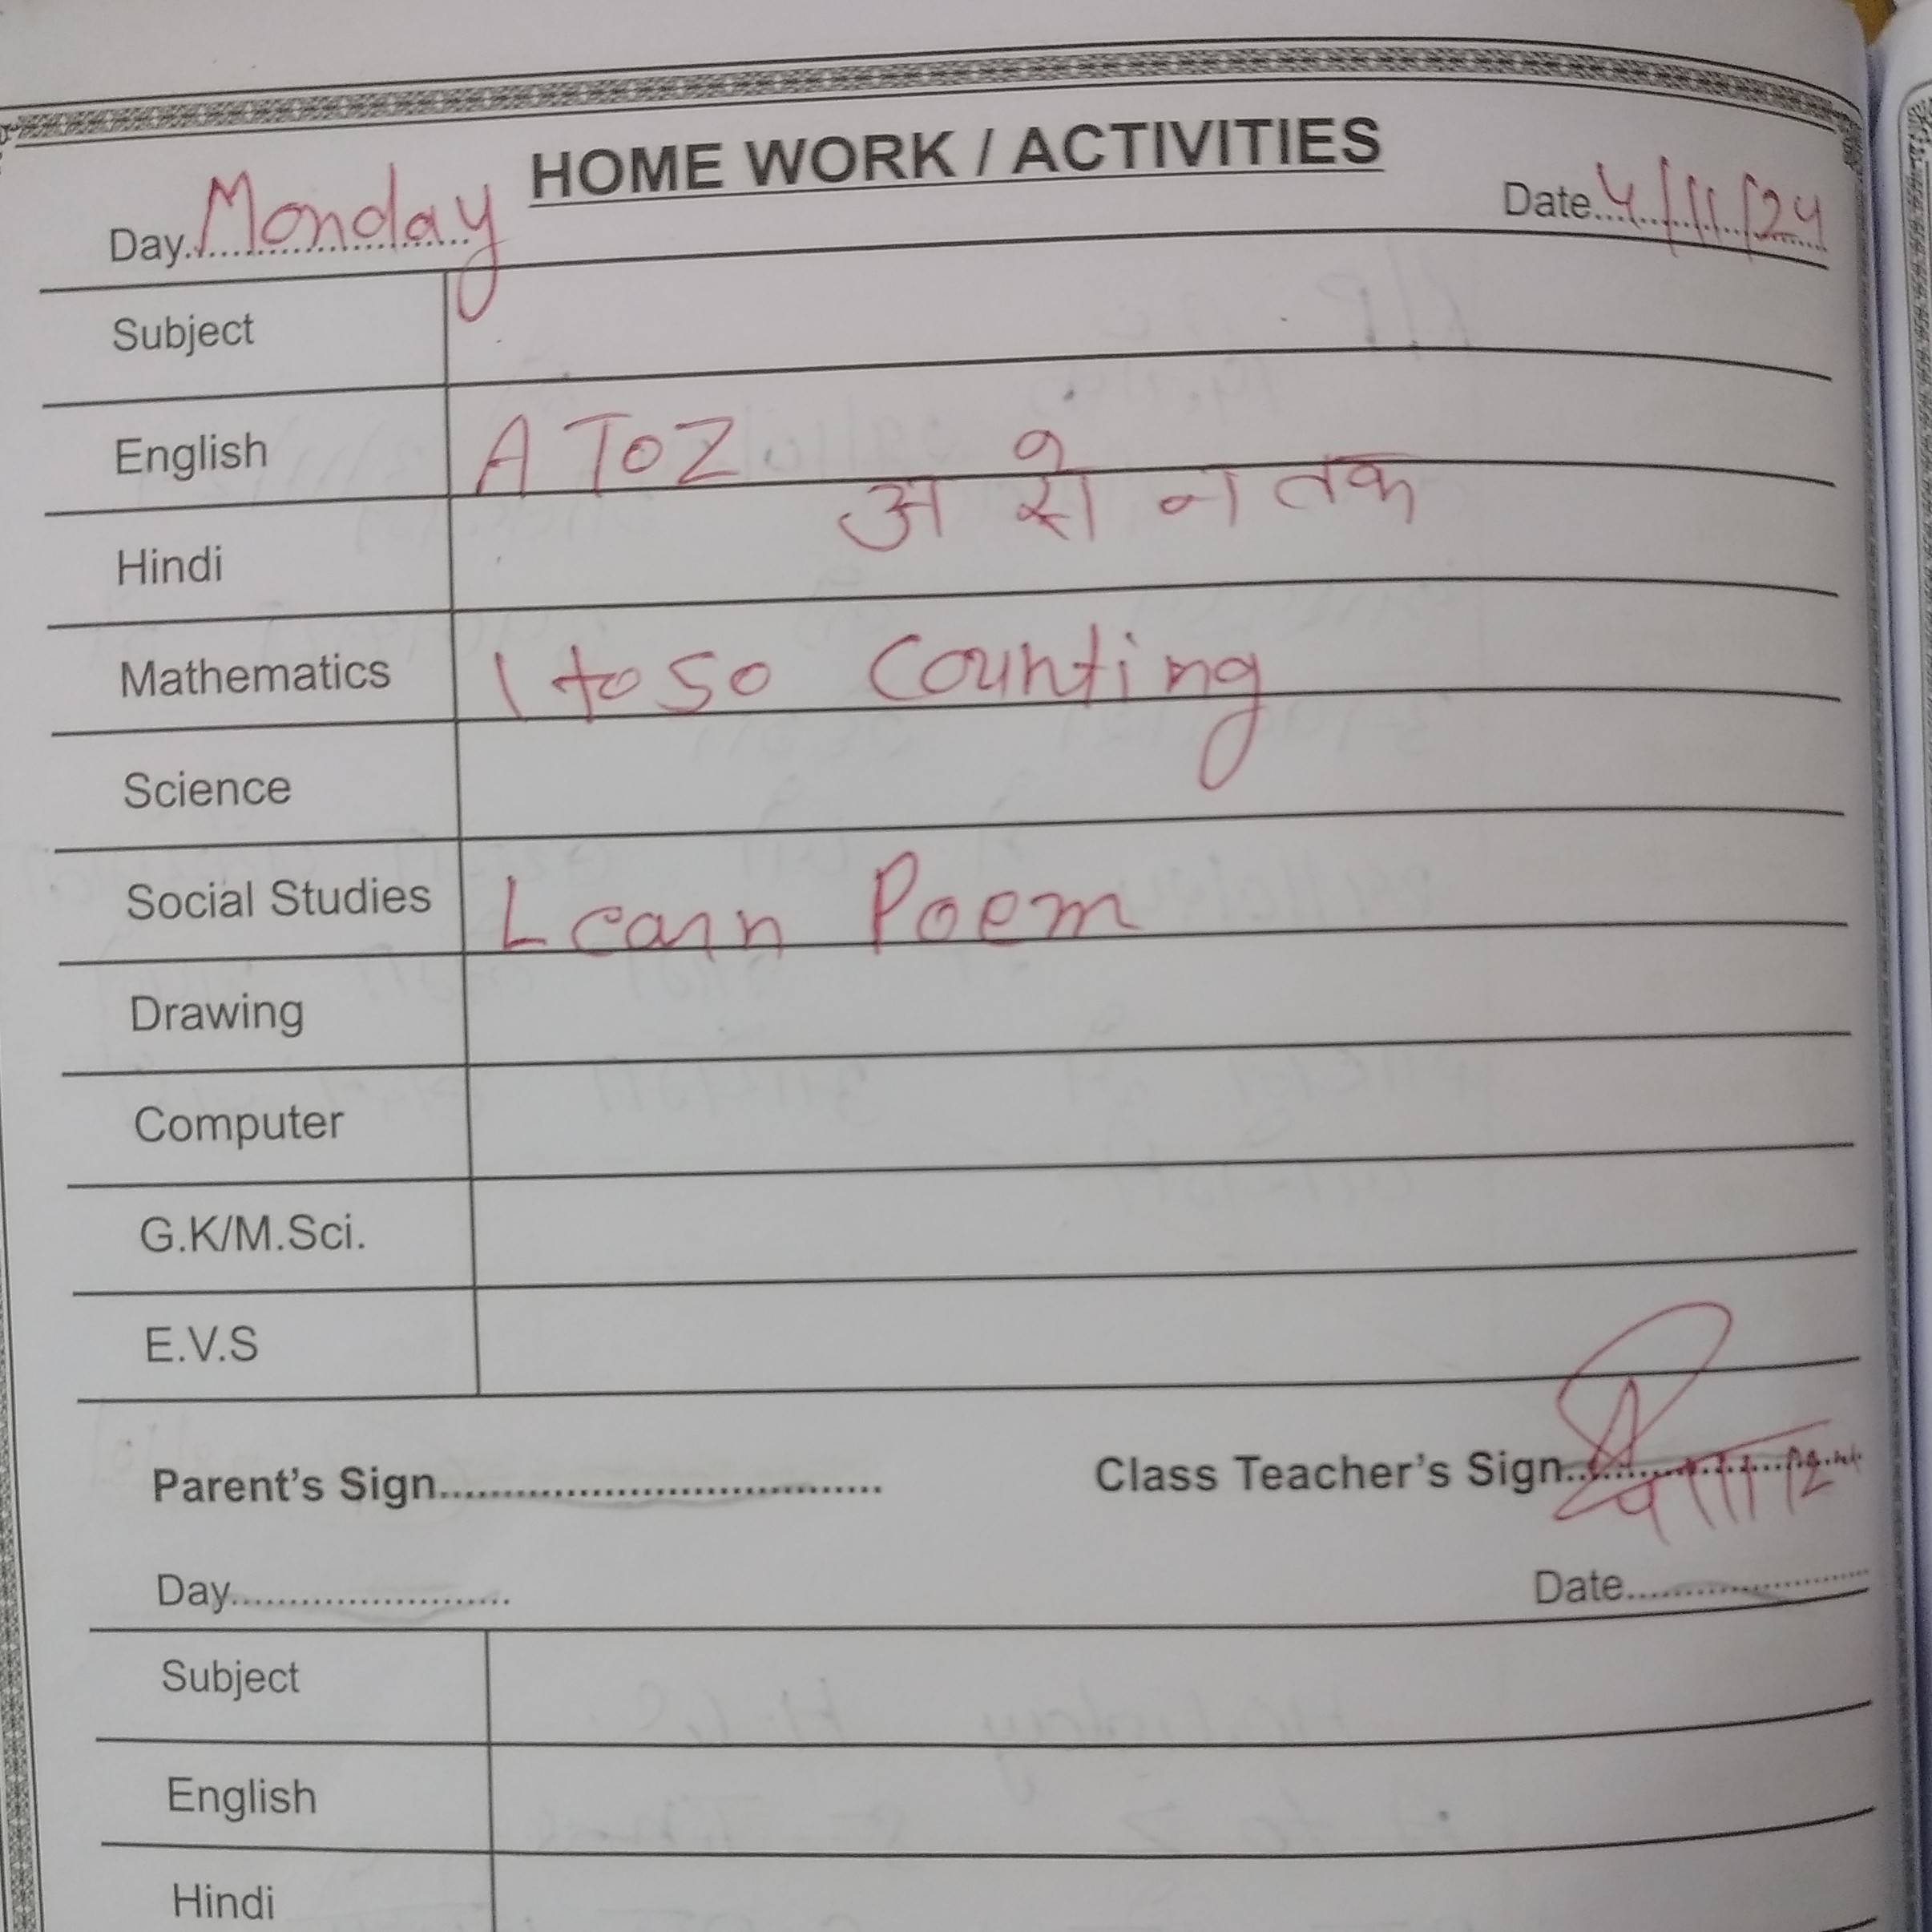 HOME WORK / ACTIVITIES
Day. Monday Date. 4/11/24
Subject
English A To Z
Hindi अ से न तक
Mathematics 1 to 50 Counting
Science
Social Studies Learn Poem
Drawing
Computer
G.K/M.Sci.
E.V.S
Parent's Sign........................ Class Teacher's Sign..
Day........................ Date........................
Subject
English
Hindi